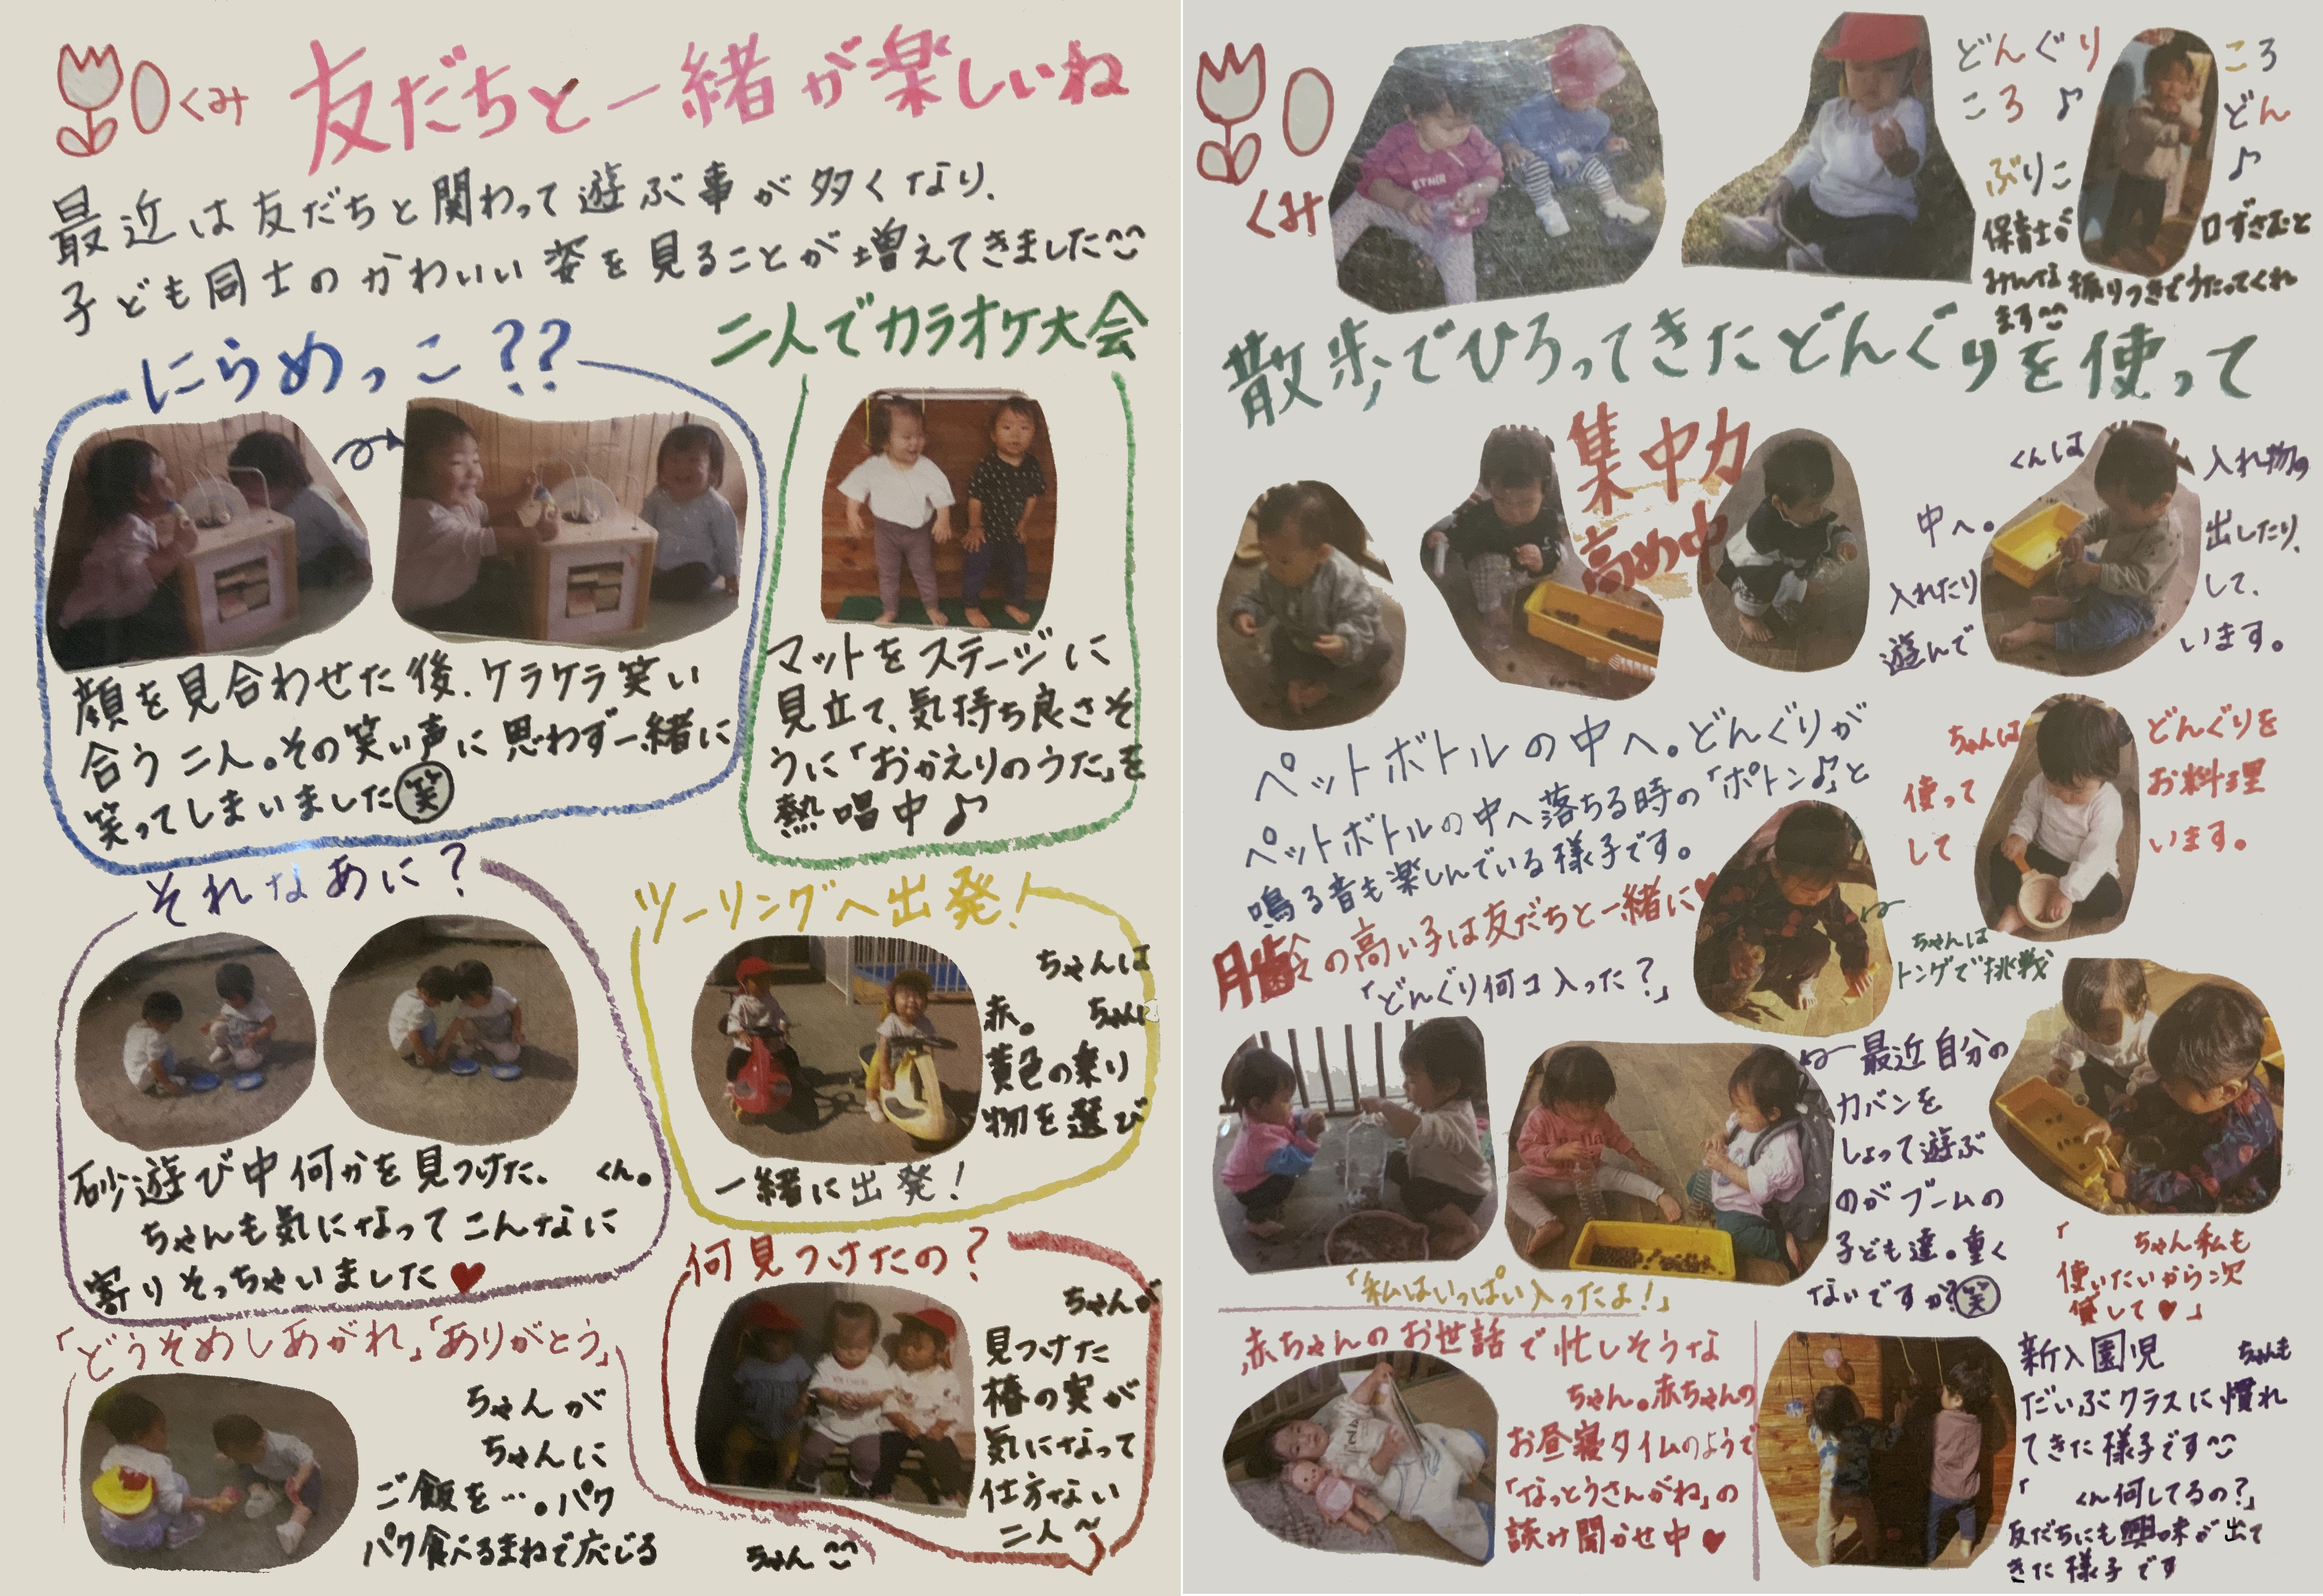 くみ
友だちと一緒が楽しいね
最近は友だちと関わって遊ぶ事が多くなり、
子ども同士のかわいい姿を見ることが増えてきました
にらめっこ??
顔を見合わせた後、ケラケラ笑い
合う二人。その笑い声に思わず一緒に
笑ってしまいました㊗笑
二人でカラオケ大会
マットをステージに
見立て、気持ち良さそ
うに「おかえりのうた」を
熱唱中♪
それなあに?
砂遊び中何かを見つけた、 くん。
ちゃんも気になってこんなに
寄りそっちゃいました♥
ツーリングへ出発!
ちゃんは
赤。 ちゃんは
黄色の乗り
物を選び
一緒に出発!
「どうぞめしあがれ」「ありがとう」
ちゃんが
ちゃんに
ご飯を…。パク
パク食べるまねで応じる
ちゃん
何見つけたの?
ちゃんが
見つけた
椿の実が
気になって
仕方ない
二人~
くみ
どんぐり ころ
ころ♪ どん
ぶりこ♪
保育士が 口ずさむと
みんな振りつきでうたってくれ
ます
散歩でひろってきたどんぐりを使って
集中力
高め中
くんは 入れ物の
中へ。 出したり、
入れたり して、
遊んで います。
ペットボトルの中へ。どんぐりが
ペットボトルの中へ落ちる時の「ポトン♪」と
鳴る音も楽しんでいる様子です。
ちゃんは どんぐりを
使って お料理
して います。
月齢の高い子は友だちと一緒に♥
「どんぐり何コ入った?」
ちゃんは
トングで挑戦
「私はいっぱい入ったよ!」
最近自分の
カバンを
しょって遊ぶ
のがブームの
子ども達。重く
ないですか?笑
「 ちゃん私も
使いたいから次
貸して♥」
赤ちゃんのお世話で忙しそうな
ちゃん。赤ちゃんの
お昼寝タイムのようで
「なっとうさんがね」の
読み聞かせ中♥
新入園児 ちゃんも
だいぶクラスに慣れ
てきた様子です
「 くん何してるの?」
友だちにも興味が出て
きた様子です